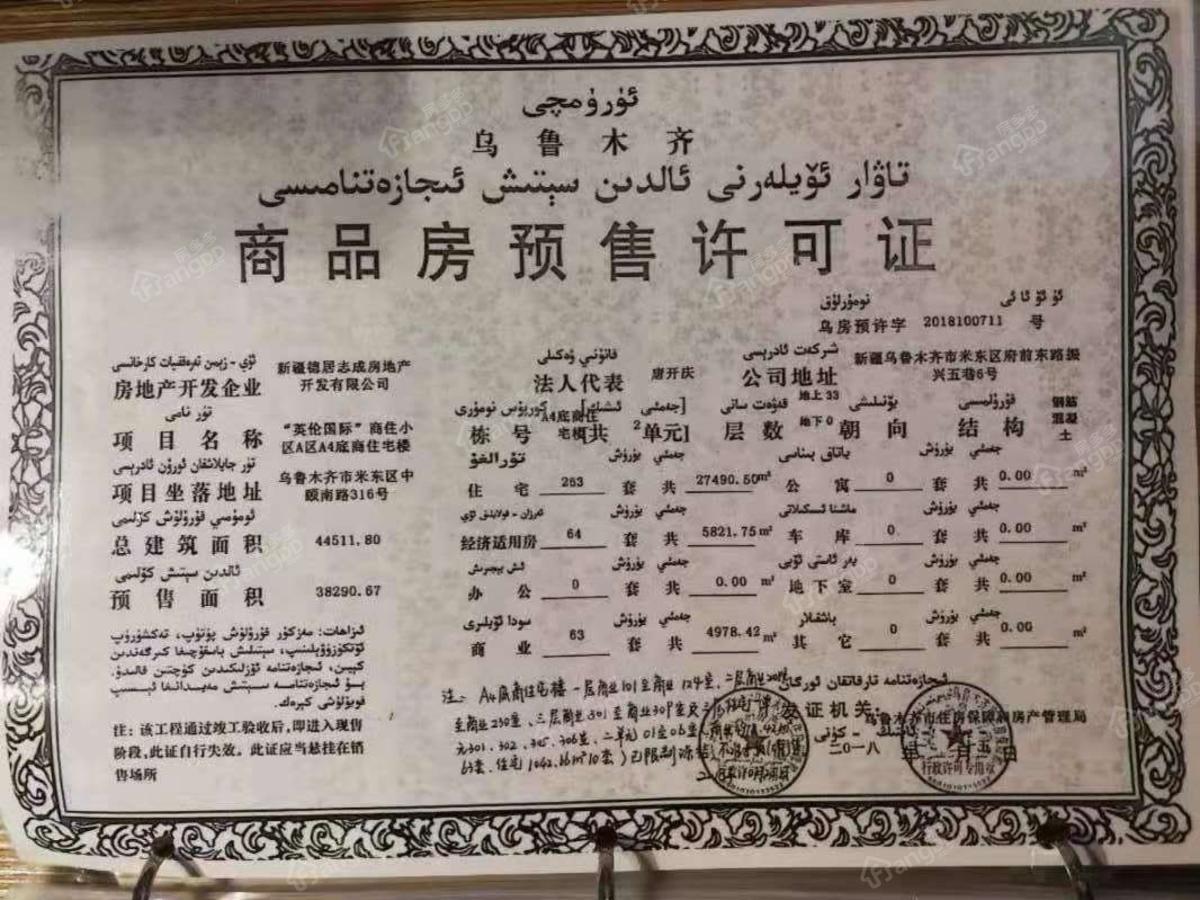 ئۈرۈمچى
乌鲁木齐
تاۋار ئۆيلەرنى ئالدىن سېتىش ئىجازەتنامىسى
商品房预售许可证
نومۇرلۇق
乌房预许字 2018100711 号
ئۆي - زېمىن تەرەققىيات كارخانىسى
房地产开发企业 新疆德居志成房地产开发有限公司
قانۇنىي ۋەكىلى
法人代表 唐开庆
شىركەت ئادرېسى
公司地址 新疆乌鲁木齐市米东区府前东路振兴五巷6号
تۈر نامى
项目名称 “英伦国际”商住小区A区A4底商住宅楼
كورپۇس نومۇرى
栋号 A4底商住宅楼
[جەمئىي ئىشىك]
[共 2 单元]
قەۋەت سانى
层数 地上33 地下0
يۆنىلىشى
朝向
قۇرۇلمىسى
结构 钢筋混凝土
تۈر جايلاشقان ئورۇن ئادرېسى
项目坐落地址 乌鲁木齐市米东区中颐南路316号
ئومۇمىي قۇرۇلۇش كۆلىمى
总建筑面积 44511.80
ئالدىن سېتىش كۆلىمى
预售面积 38290.67
تۇرالغۇ يۈرۈش جەمئىي
住宅 253 套 共 27490.50 m²
ياتاق بىناسى يۈرۈش جەمئىي
公寓 0 套 共 0.00 m²
يۈرۈش جەمئىي
经济适用房 64 套 共 5821.75 m²
ماشىنا ئىسكىلاتى يۈرۈش جەمئىي
车库 0 套 共 0.00 m²
ئىش بېجىرىش يۈرۈش جەمئىي
办公 0 套 共 0.00 m²
يەر ئاستى ئۆيى يۈرۈش جەمئىي
地下室 0 套 共 0.00 m²
سودا ئۆيلىرى يۈرۈش جەمئىي
商业 63 套 共 4978.42 m²
باشقىلار يۈرۈش جەمئىي
其它 0 套 共 0.00 m²
ئىزاھات: مەزكۇر قۇرۇلۇش پۈتۈپ، تەكشۈرۈپ
ئۆتكۈزۈۋېلىنىپ، سېتىلىش باسقۇچىغا كىرگەندىن
كېيىن، ئىجازەتنامە ئۆزلىكىدىن كۈچتىن قالىدۇ.
بۇ ئىجازەتنامە سېتىش مەيدانىغا ئېسىپ
قويۇلۇشى كېرەك.
注: 该工程通过竣工验收后,即进入现售
阶段,此证自行失效。此证应当悬挂在销
售场所
注: A4底商住宅楼一层商业101至商业124室、二层商业
至商业230室、三层商业301至商业309室
元301、302、305、306室、二单元01室06室
63套、住宅1042.66m²10套)已限制
ئىجازەتنامە تارقاتقان ئورگان
发证机关: 乌鲁木齐市住房保障和房产管理局
二〇一八 年 月 日
行政许可专用章
房多多
FangDD